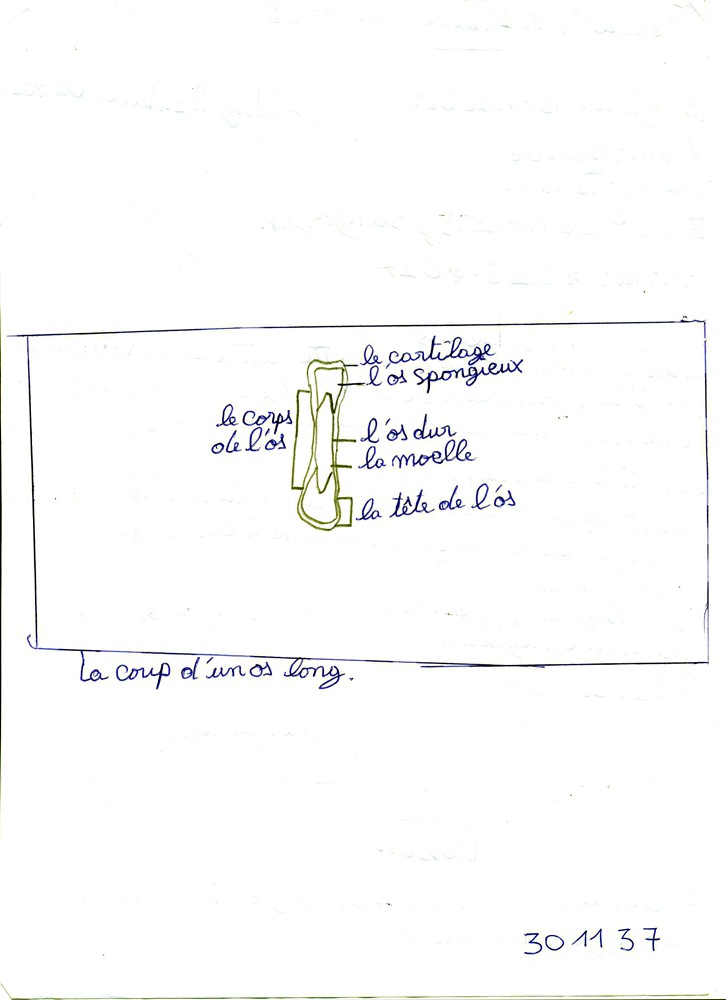 le cartilage
l'os spongieux
le corps
de l'os
l'os dur
la moelle
la tête de l'os
La coup d'un os long.
301137